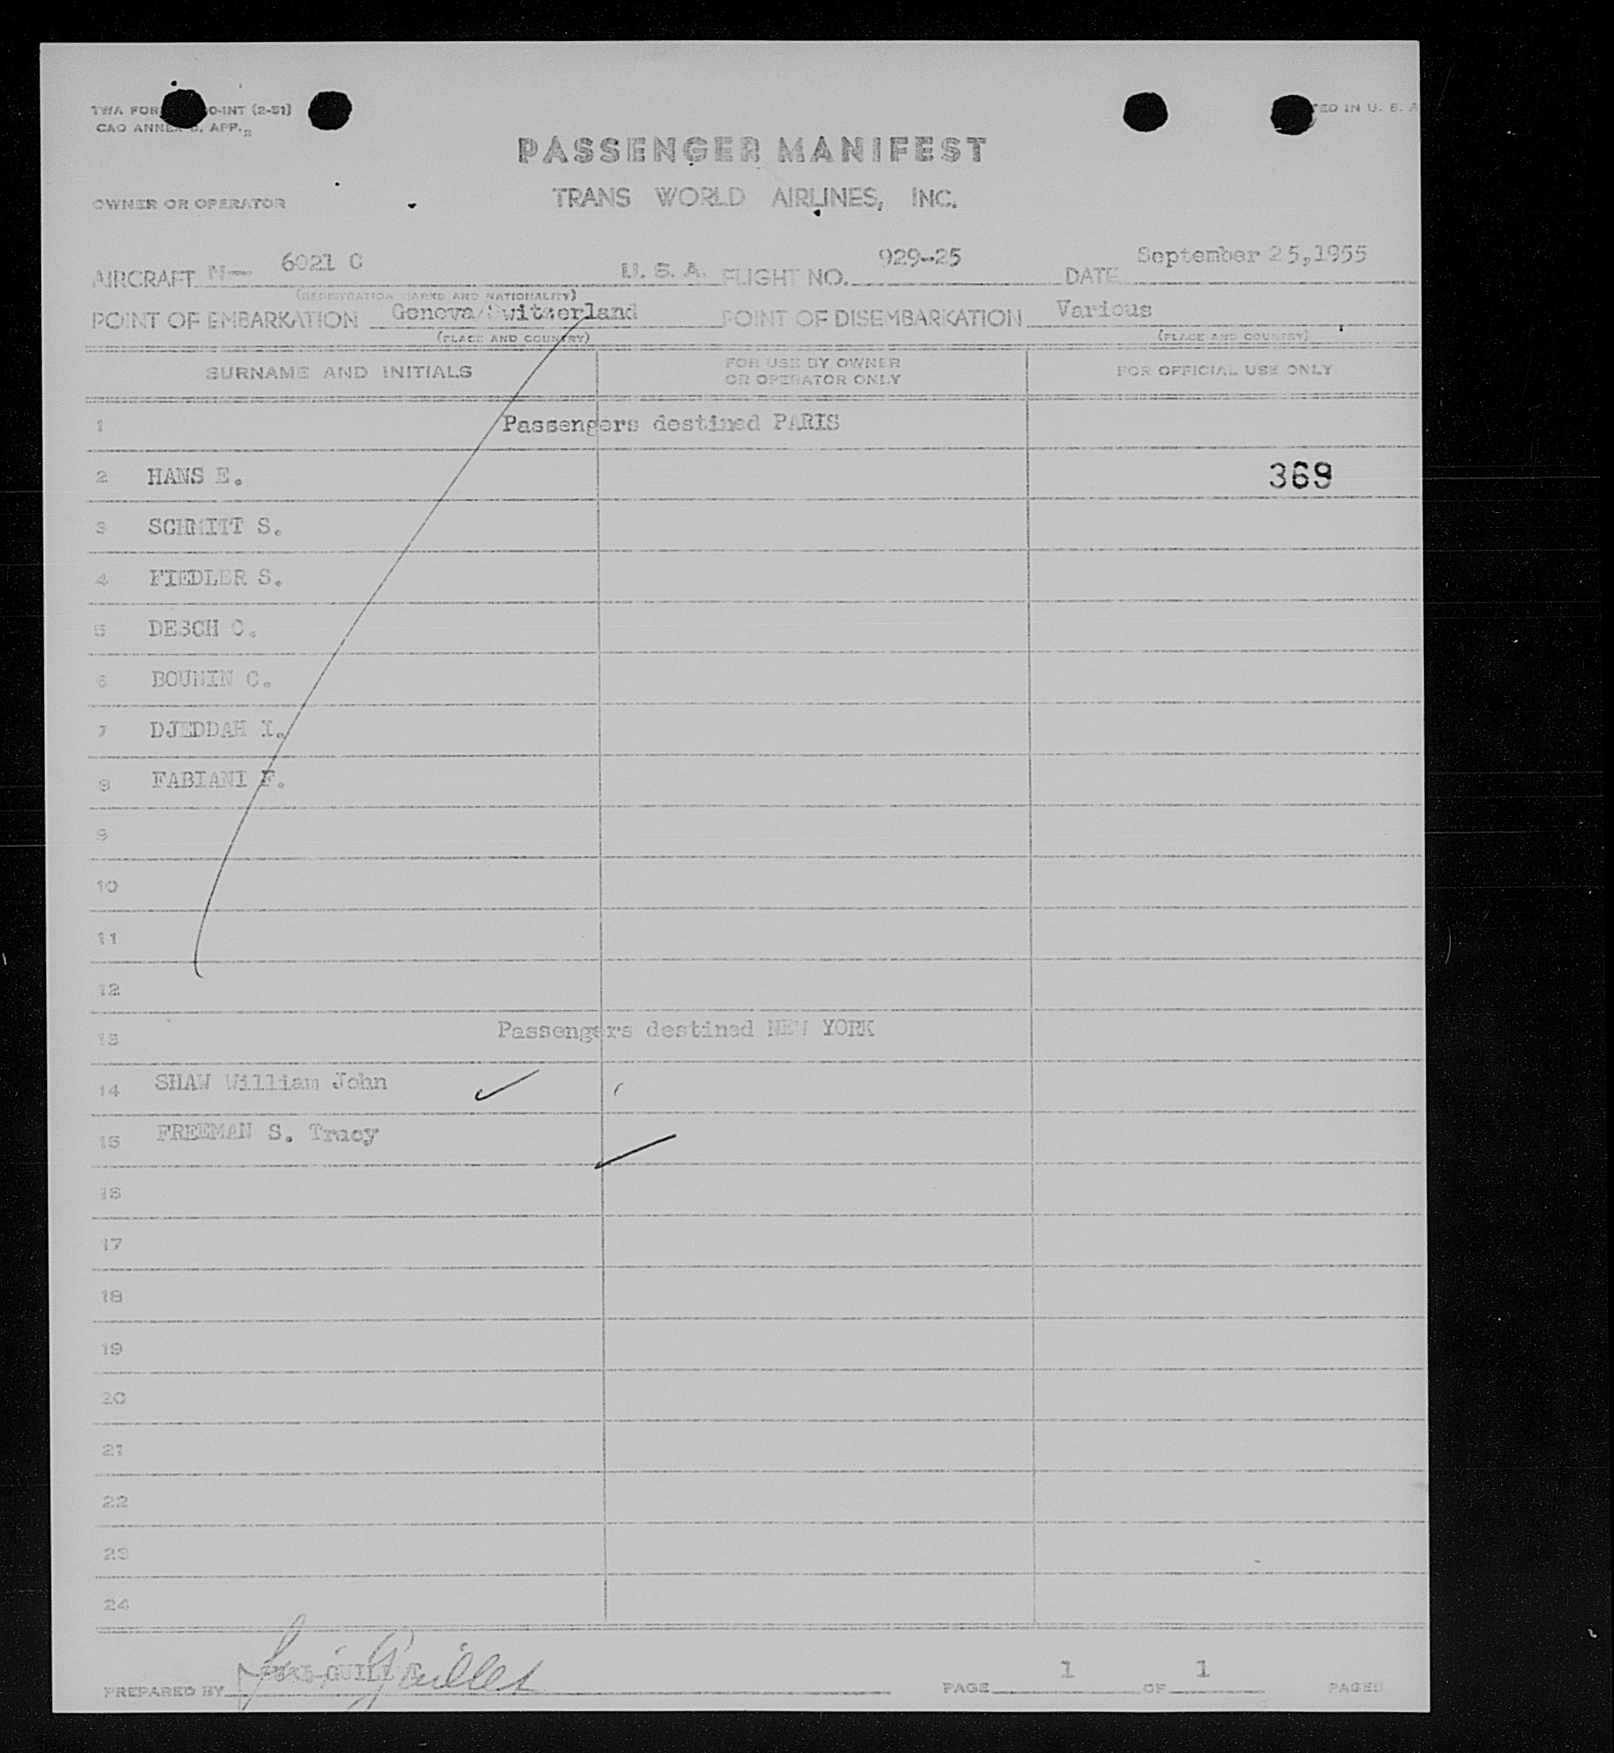 TWA FOR O-INT (2-51)
CAO ANNEX APP.
TED IN U. S. A
PASSENGER MANIFEST
OWNER OR OPERATOR
TRANS WORLD AIRLINES, INC.
AIRCRAFT N— 6021 C U. S. A. FLIGHT NO. 929-25 DATE September 25,1955
(REGISTRATION MARKS AND NATIONALITY)
POINT OF EMBARKATION Geneva/Switzerland POINT OF DISEMBARKATION Various
(PLACE AND COUNTRY) (PLACE AND COUNTRY)
SURNAME AND INITIALS FOR USE BY OWNER OR OPERATOR ONLY FOR OFFICIAL USE ONLY
1 Passengers destined PARIS
2 HANS E. 369
3 SCHMITT S.
4 FIEDLER S.
5 DESCH C.
6 BOUNIN C.
7 DJEDDAH I.
8 FABIANI F.
9
10
11
12
13 Passengers destined NEW YORK
14 SHAW William John
15 FREEMAN S. Tracy
16
17
18
19
20
21
22
23
24
PREPARED BY PAGE 1 OF 1 PAGES